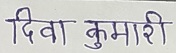 दिवा कुमारी